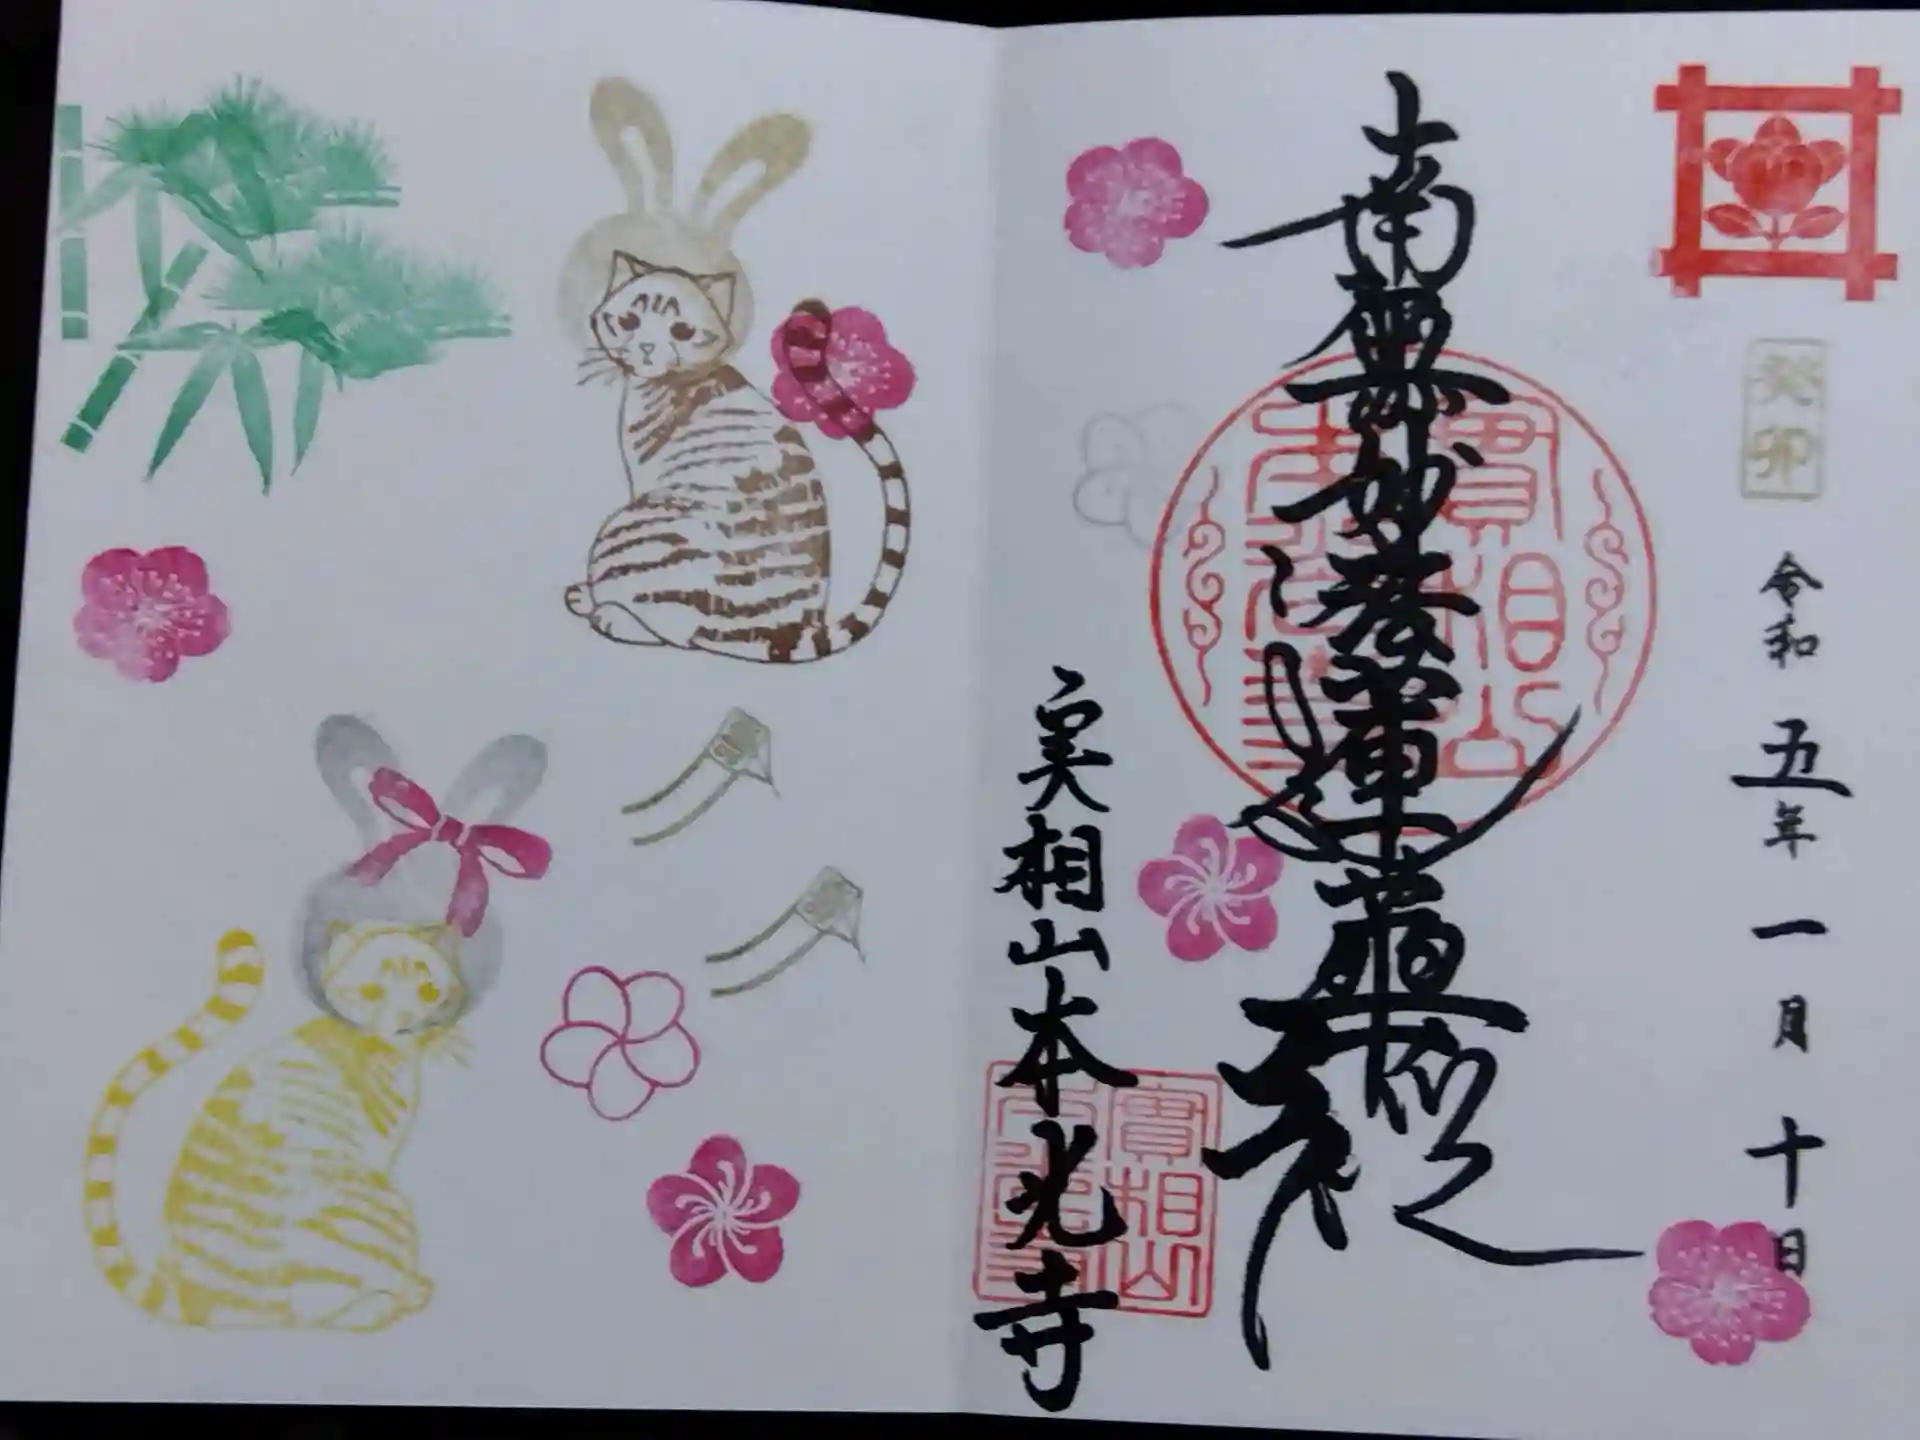 癸卯
令和五年一月十日
南無妙法蓮華経
實相山
本光寺
実相山本光寺
實相山
本光寺